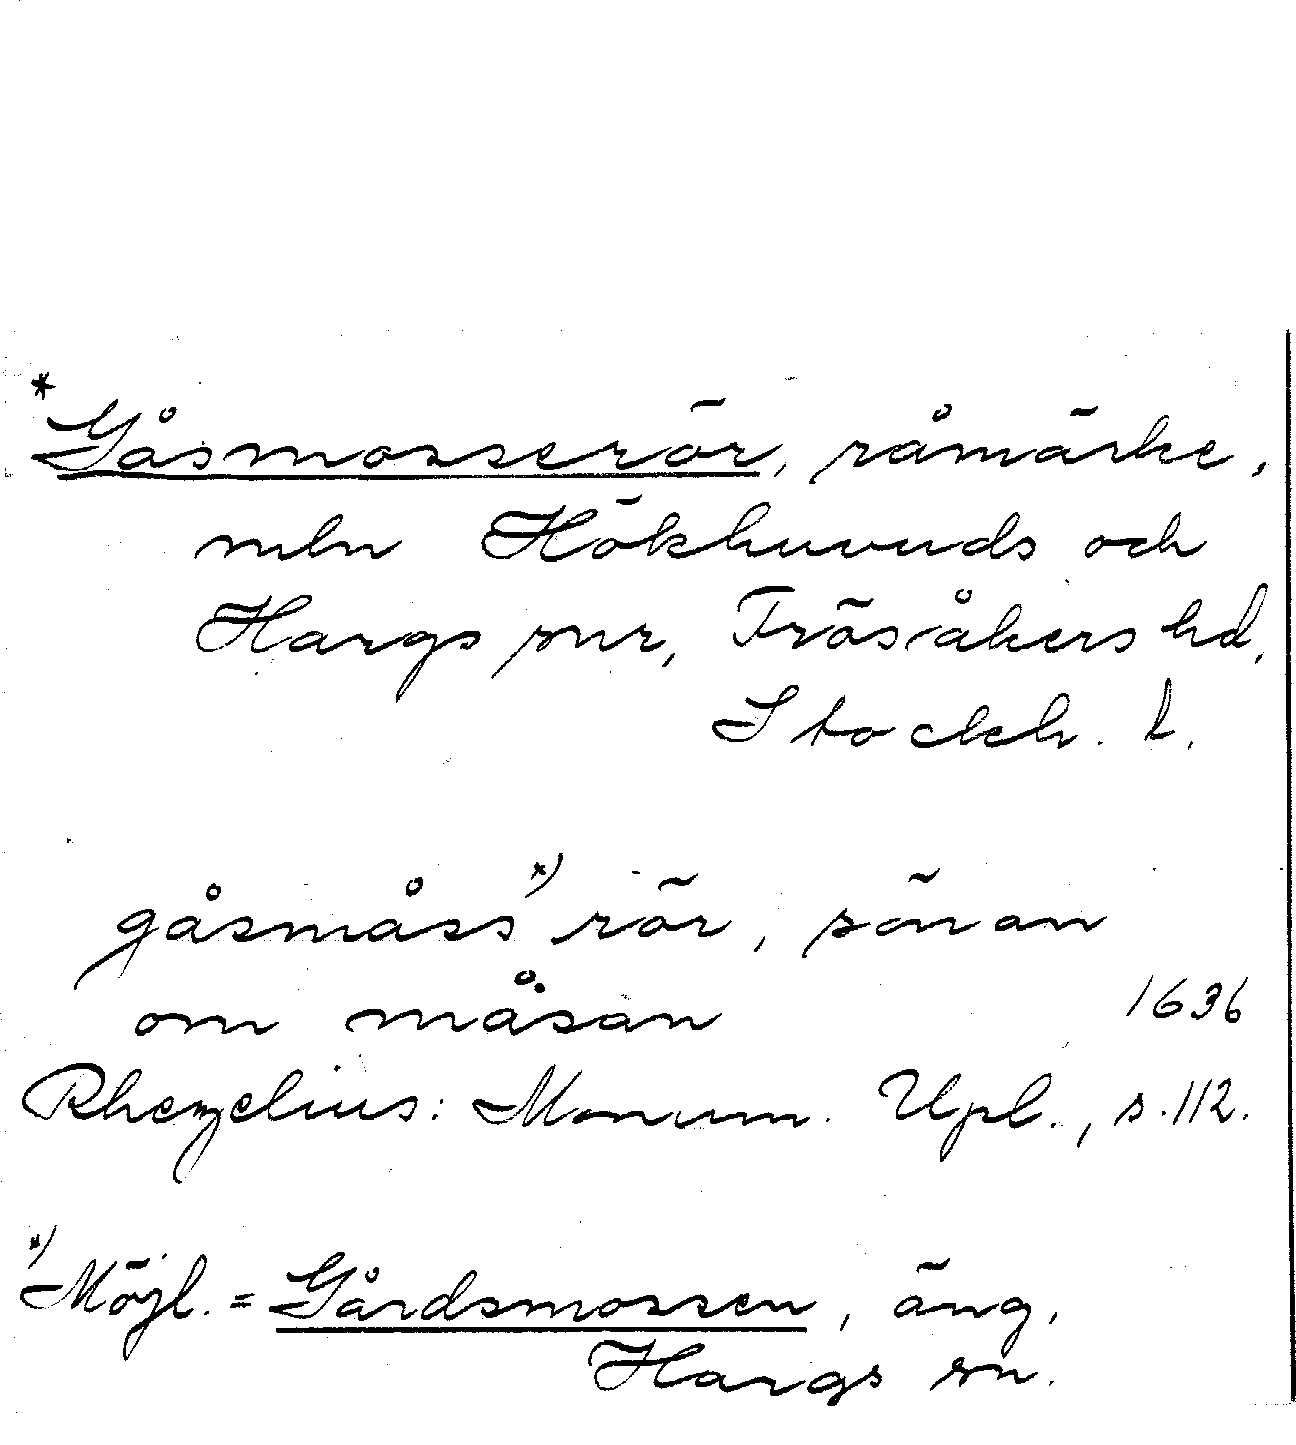 *Gåsmosserör, råmärke,
mln Hökhuvuds och
Hargs snr, Frösåkers hd,
Stockh. l.
gåsmåss *) rör, sönan
om måsan 1636
Rhezelius: Monum. Upl., s. 112.
*) Möjl. = Gårdsmossen, äng,
Hargs sn.